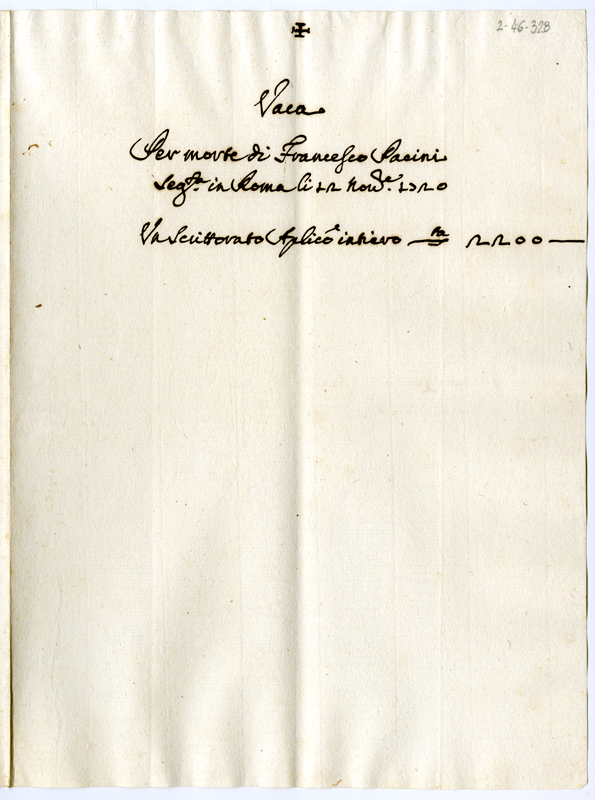 ✠
2-46-328
Vaca
Per morte di Francesco Pacini
seg.ta in Roma li 12 Nou.e 1720
Un Scrittorato Aplico intiero 2200